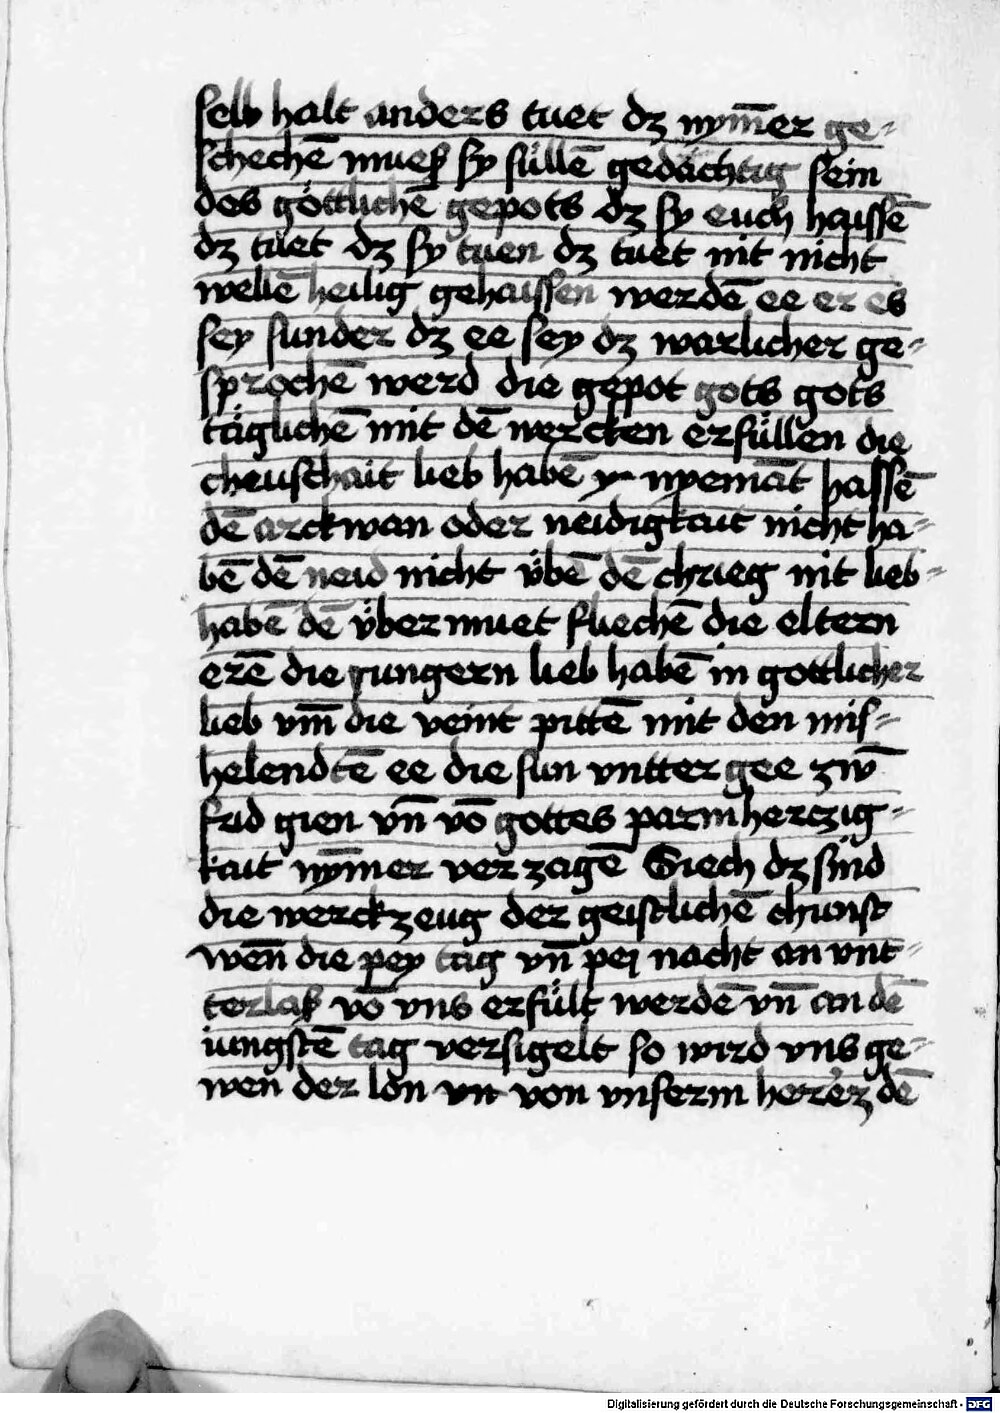 selb halt anders tuet dz nym̄er ge-
schechē mueß sy süllē gedächtig sein
des göttlichē gepots dz sy euch haissē
dz tuet dz sy tuen dz tuet nit nicht
wellē heilig gehaissen werdē ee er es
sey sunder dz ee sey dz warlicher ge-
sprochē werd die gepot gots gots
täglichē mit dē wercken erfüllen die
cheuschait lieb habē nyemāt hassē
dē arckwan oder neidigkait nicht ha-
bē dē neid nicht v̈bē dē chrieg nit lieb-
habē dē v̈bermuet fliechē die eltern
erē die jungern lieb habē in gottlicher
lieb vm̄ die veint pittē mit den mis-
helendtē ee die sun vntter gee zw̄
frid gien vn̄ vō gottes parmherczig-
kait nym̄er verzagē Siech dz sind
die werckzeug der geistlichē chunst
wen̄ die pey tag vn̄ pei nacht an vnt-
terlaß vō vns erfült werdē vn̄ an dē
iungstē tag versigelt so wird vns ge-
wen der lon vn von vnserm herrē dē
Digitalisierung gefördert durch die Deutsche Forschungsgemeinschaft - DFG